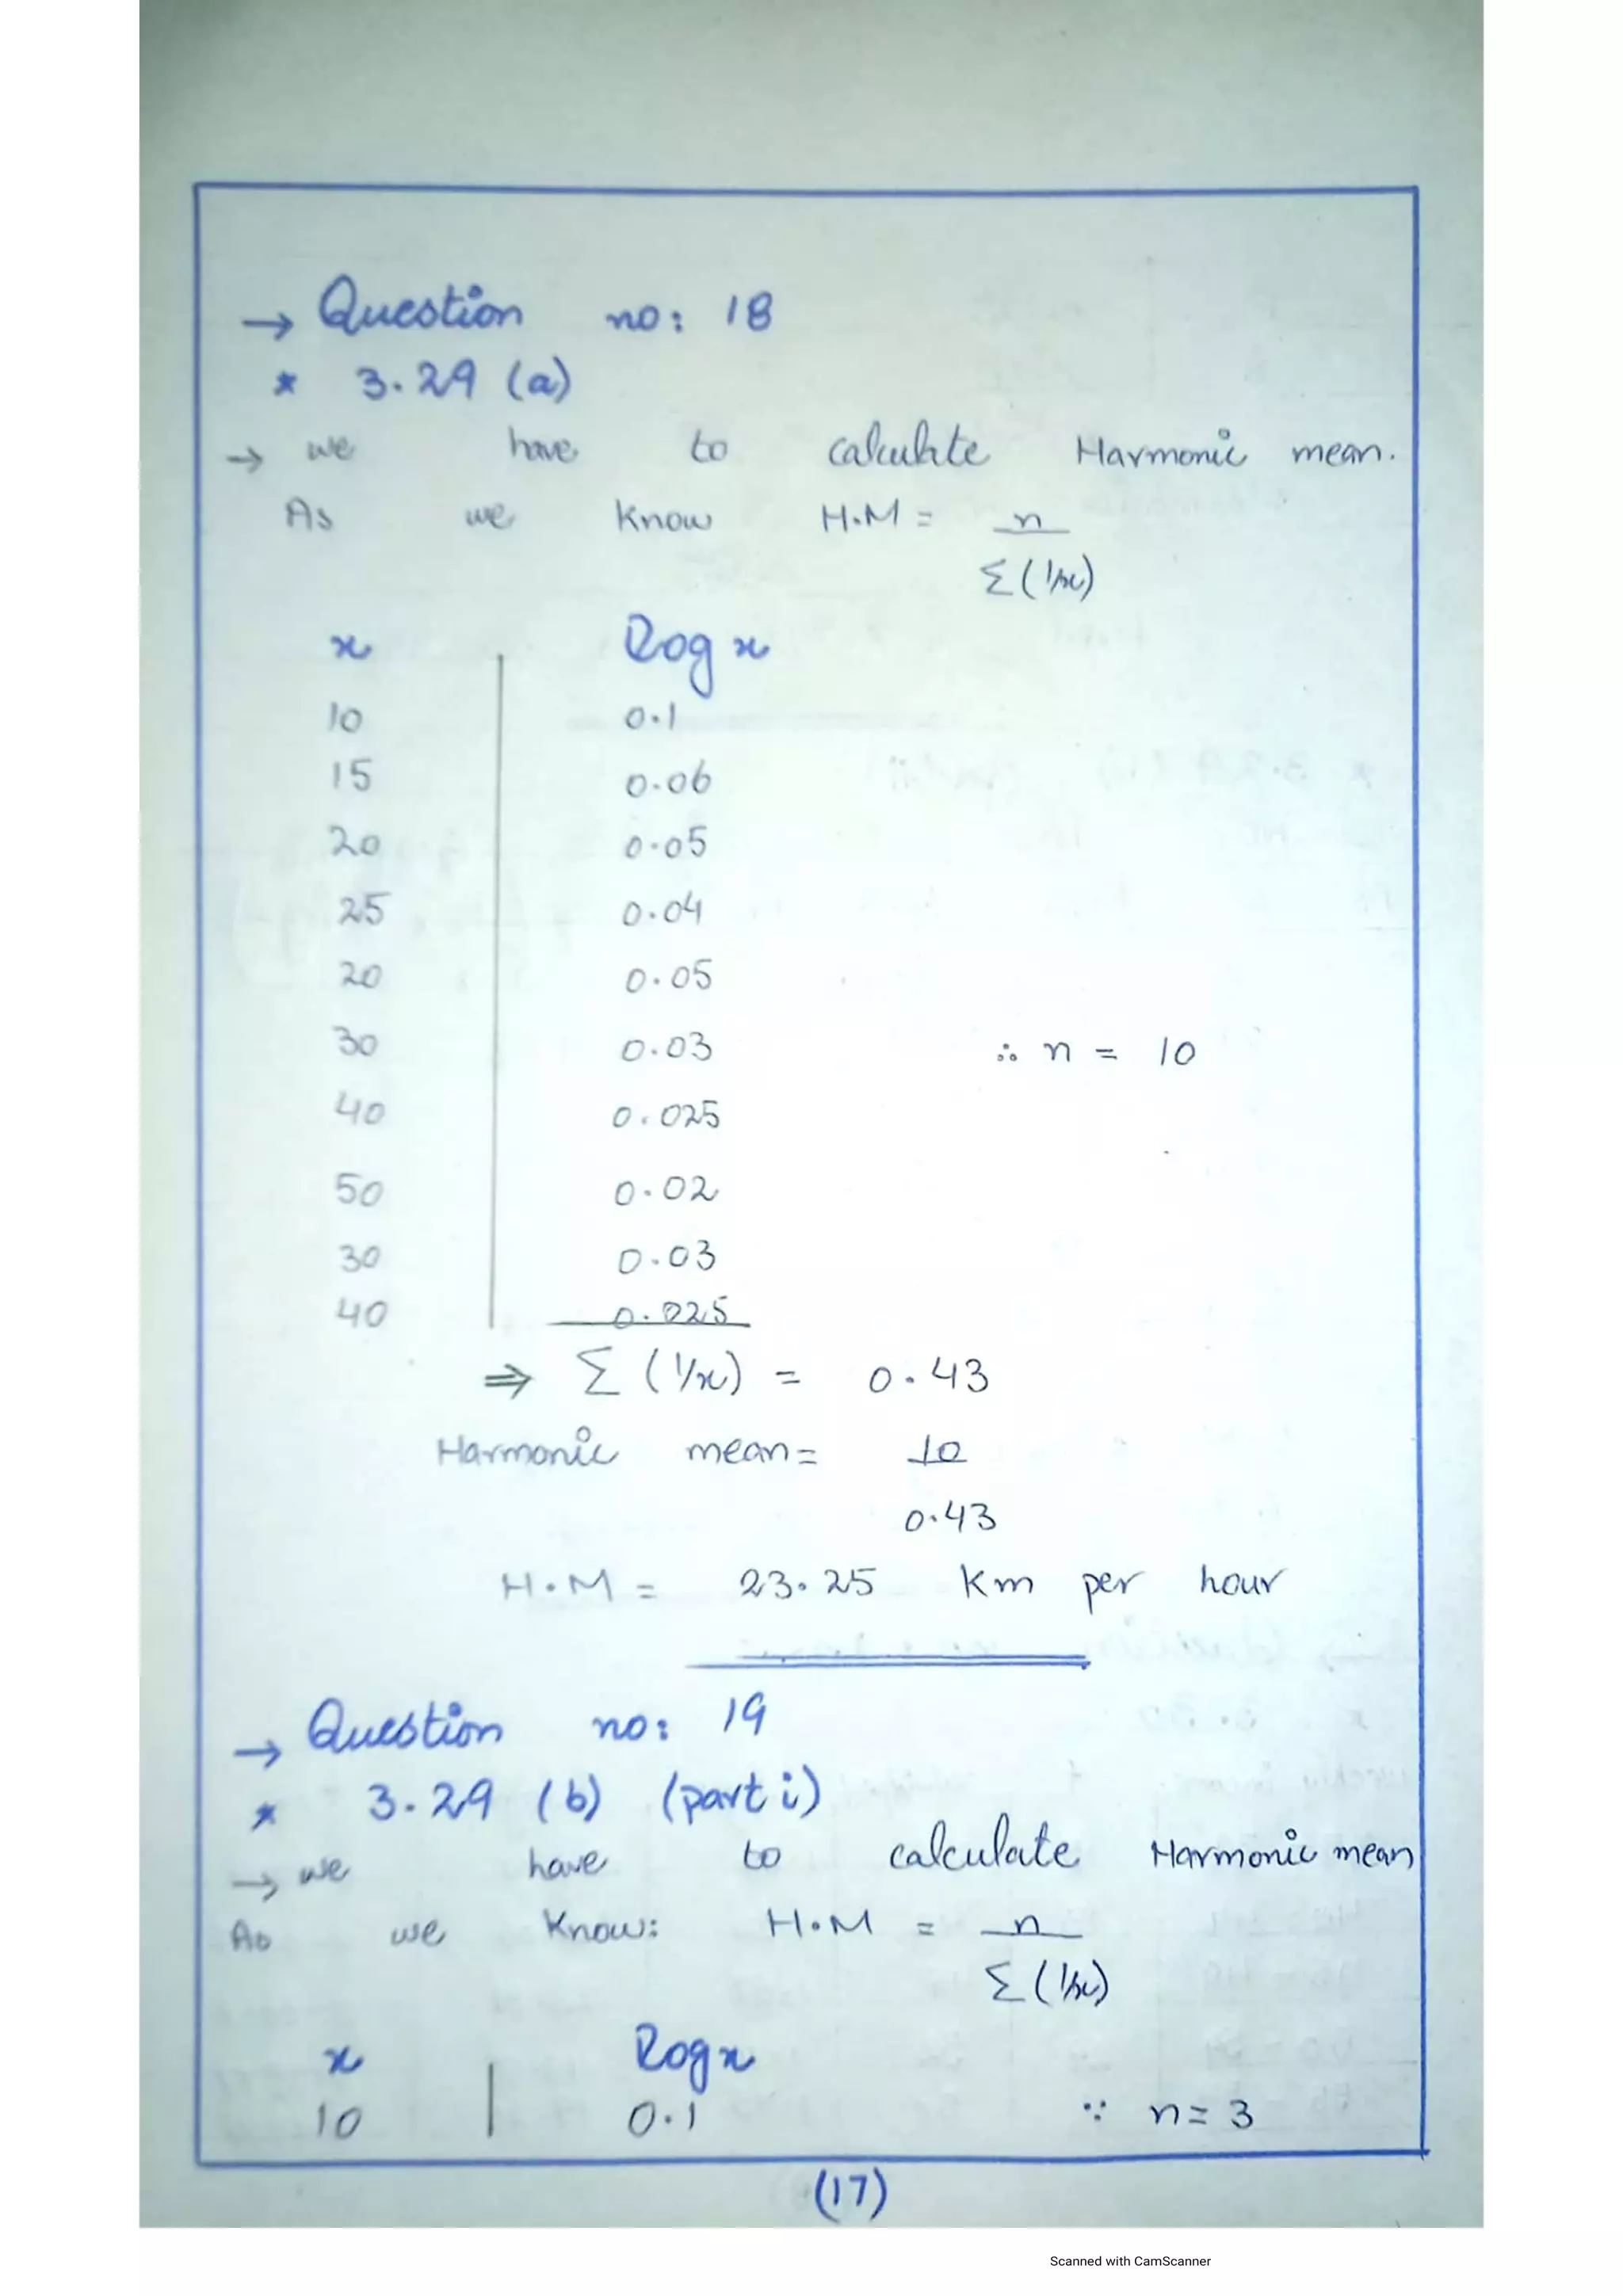 → Question no: 18
* 3.29 (a)
→ we have to calculate Harmonic mean.
As we know H.M = n
Σ(1/x)
x | log x
10 | 0.1
15 | 0.06
20 | 0.05
25 | 0.04
20 | 0.05
30 | 0.03 ∴ n = 10
40 | 0.025
50 | 0.02
30 | 0.03
40 | 0.025
⇒ Σ (1/x) = 0.43
Harmonic mean = 10
0.43
H.M = 23.25 Km per hour
→ Question no: 19
* 3.29 (b) (part i)
→ we have to calculate Harmonic mean
As we know: H.M = n
Σ(1/x)
x | log x
10 | 0.1 ∵ n = 3
(17)
Scanned with CamScanner